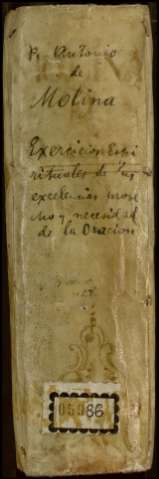 P. Antonio
de
Molina
Exercicios Espi
rituales de las
excelencias prove
cho y necesidad
de la Oracion
05986